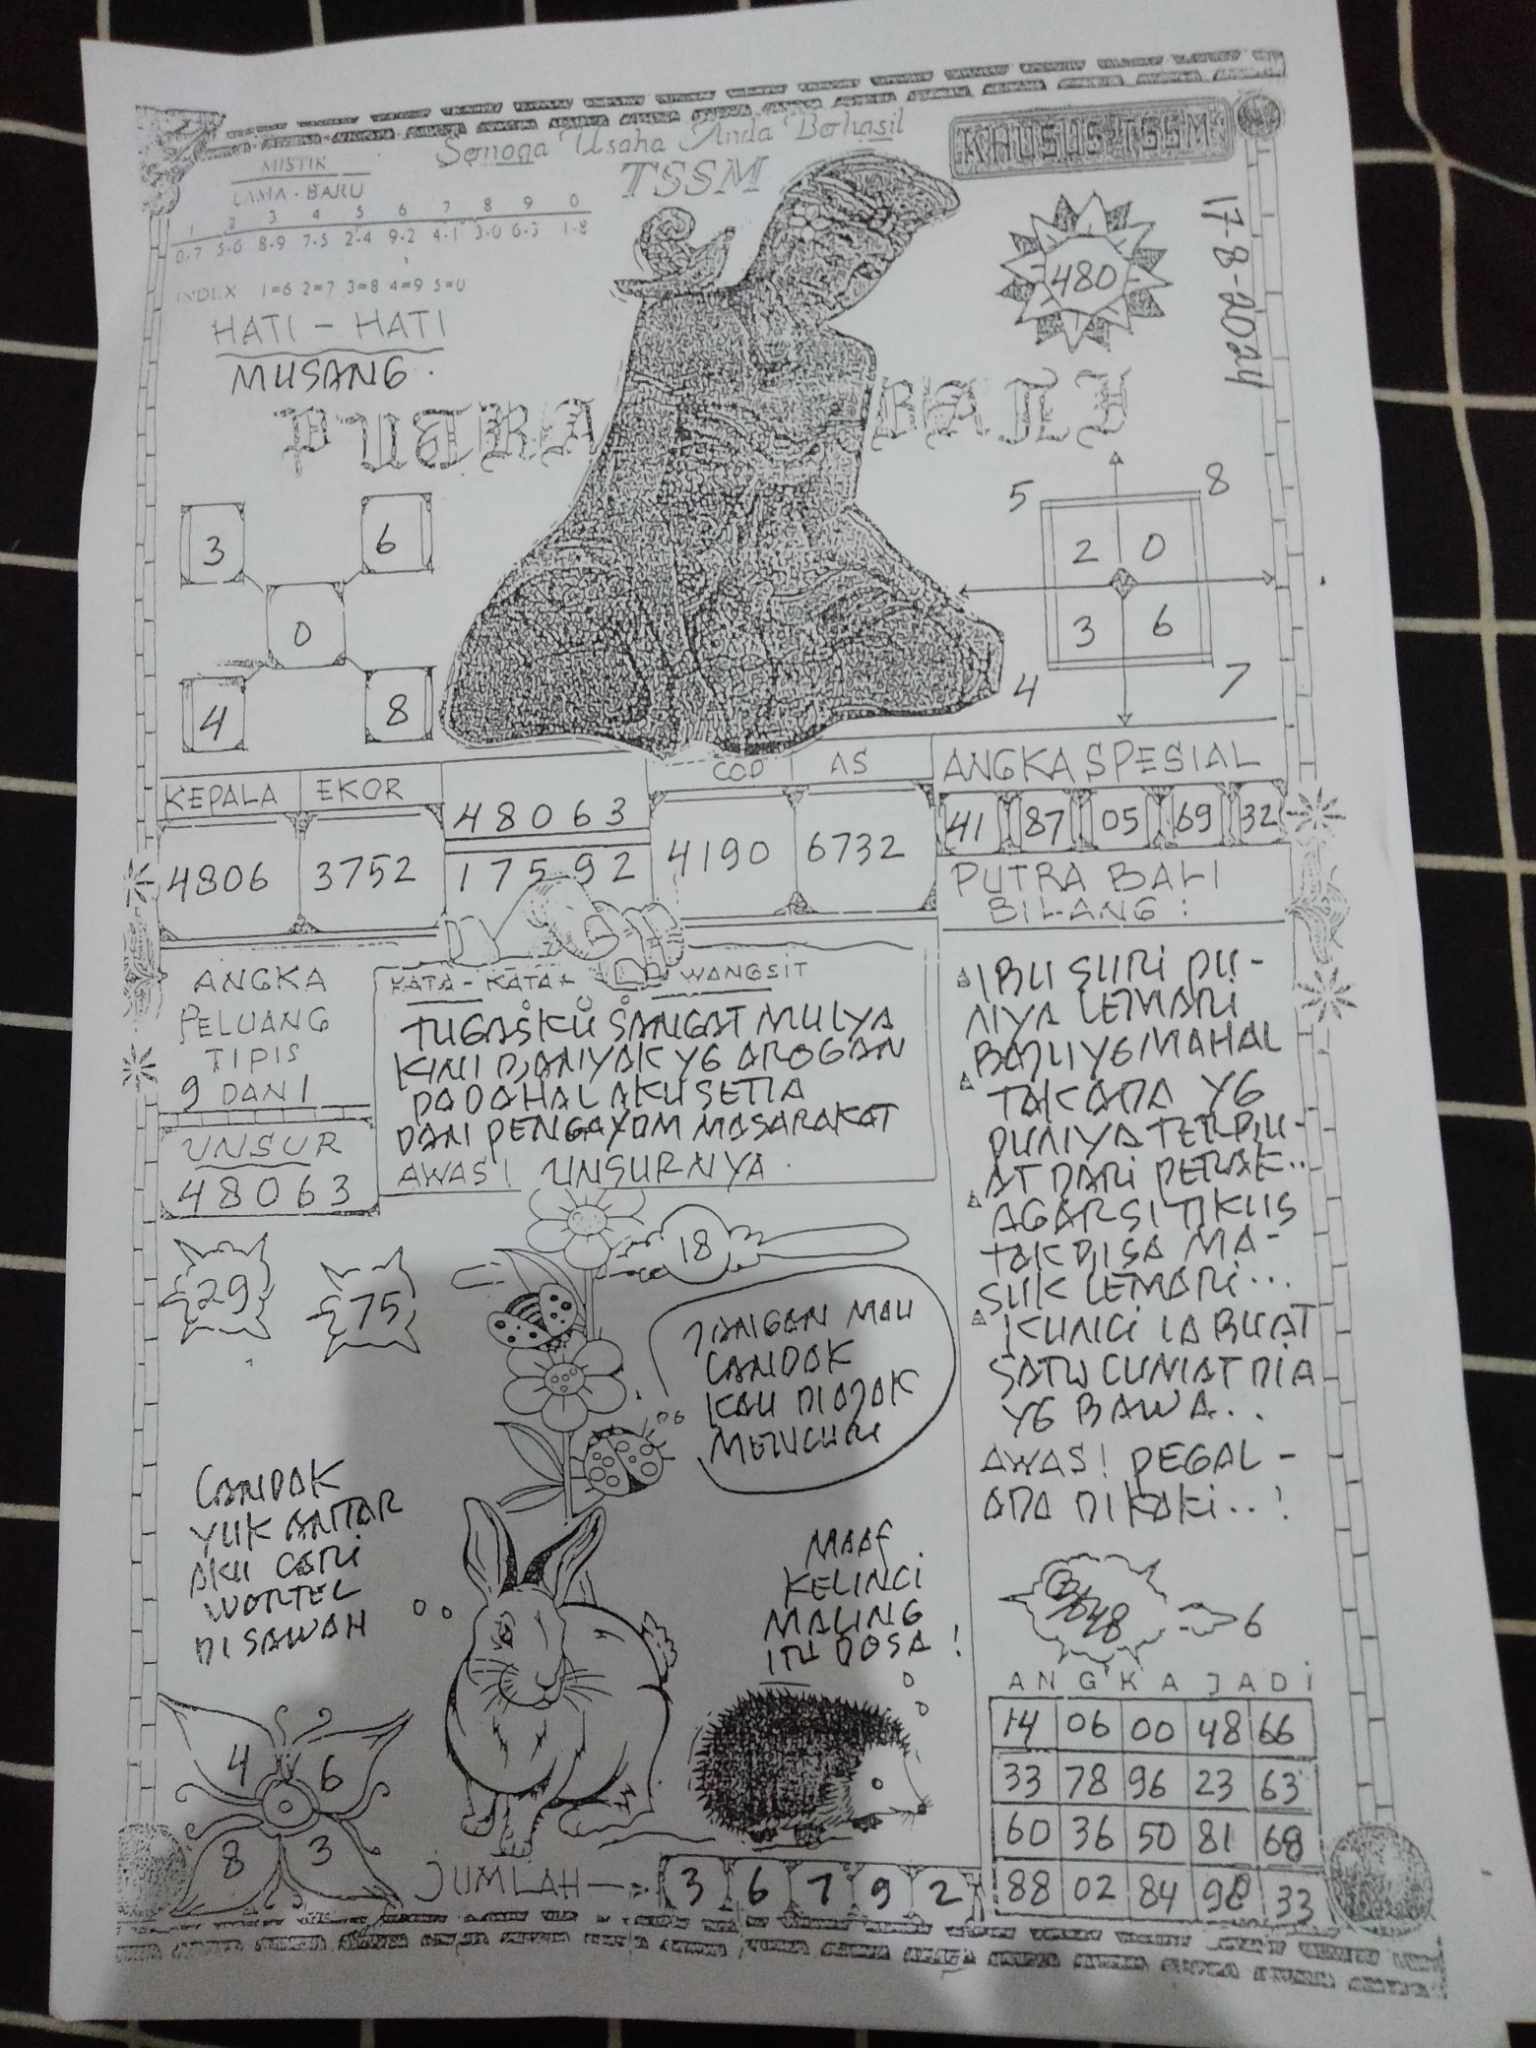 Semoga Usaha Anda Berhasil
TSSM
KHUSUS TSSM
17-8-2024
MISTIK
LAMA - BARU
1 2 3 4 5 6 7 8 9 0
0-7 5-6 8-9 7-5 2-4 9-2 4-1 3-0 6-3 1-8
INDEX 1=6 2=7 3=8 4=9 5=0
HATI - HATI
MUSANG.
480
PUTRA BALI
3 6
0
4 8
5 8
2 0
3 6
4 7
KEPALA EKOR
4806 3752
48063
17592
COP AS
4190 6732
ANGKA SPESIAL
41 87 05 69 32
PUTRA BALI
BILANG :
IBU SURI PU-
NYA LEMARI
BAJU YG MAHAL
TAK ADA YG
PUNYA TERBU-
AT DARI PERAK..
AGAR SI TIKUS
TAK BISA MA-
SUK LEMARI...
KUNCI IA BUAT
SATU CUMAT DIA
YG BAWA..
AWAS! PEGAL-
ADA DI KAKI..!
ANGKA
PELUANG
TIPIS
9 DAN 1
UNSUR
48063
KATA - KATA WANGSIT
TUGASKU SANGAT MULYA
KINI BANYAK YG AROGAN
PADAHAL AKU SETIA
DAN PENGAYOM MASARAKAT
AWAS! UNSURNYA.
29
75
18
JANGAN MAU
LANDAK
KAU DIAJAK
MENCURI
LANDAK
YUK ANTAR
AKU CARI
WORTEL
DI SAWAH
MAAF
KELINCI
MALING
ITU DOSA!
4 6
8 3
JUMLAH
3 6 7 9 2
48 6
ANGKA JADI
14 06 00 48 66
33 78 96 23 63
60 36 50 81 68
88 02 84 98 33